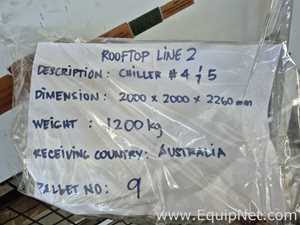 ROOFTOP LINE 2
DESCRIPTION: CHILLER #4 & 5
DIMENSION: 2000 x 2000 x 2260 mm
WEIGHT: 1200 kg
RECEIVING COUNTRY: AUSTRALIA
PALLET NO: 9
www.EquipNet.com